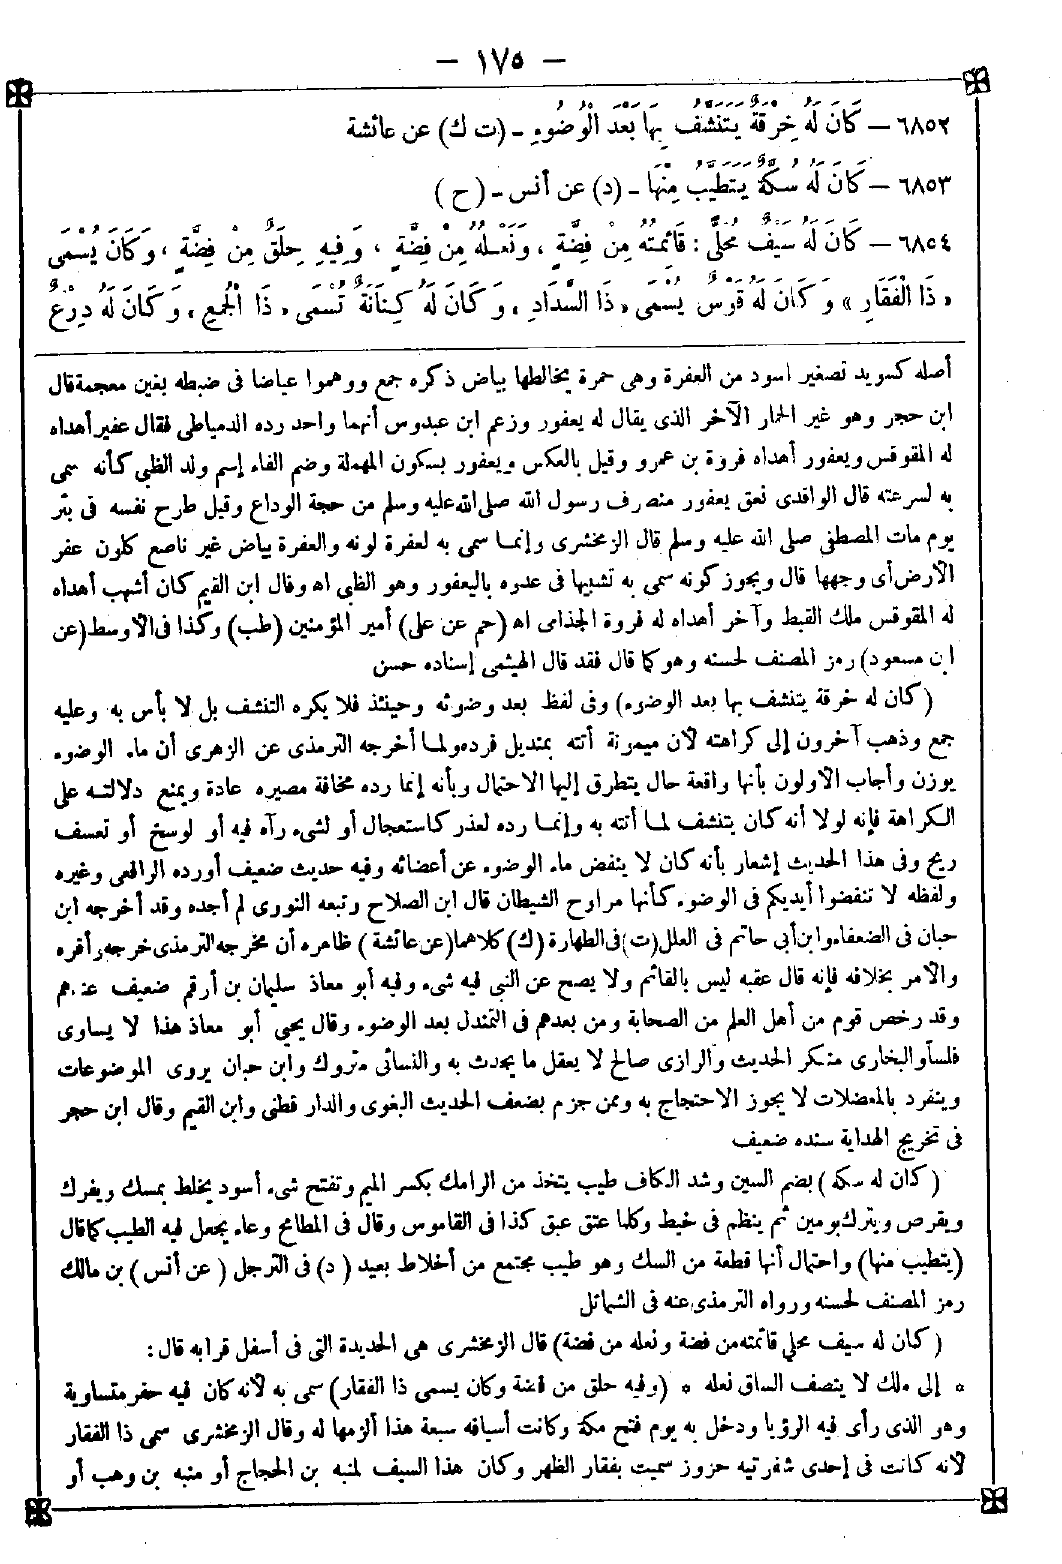 — ١٧٥ —
٦٨٥٢ — كَانَ لَهُ خِرْقَةٌ يَتَنَشَّفُ بِهَا بَعْدَ الْوُضُوءِ - (ت ك) عن عائشة
٦٨٥٣ — كَانَ لَهُ سُكَّةٌ يَتَطَيَّبُ مِنْهَا - (د) عن أنس - (ح)
٦٨٥٤ — كَانَ لَهُ سَيْفٌ مُحَلًّى: قَائِمَتُهُ مِنْ فِضَّةٍ، وَنَعْلُهُ مِنْ فِضَّةٍ، وَفِيهِ حِلَقٌ مِنْ فِضَّةٍ، وَكَانَ يُسْمَى
«ذَا الْفَقَارِ» وَكَانَ لَهُ قَوْسٌ يُسْمَى «ذَا السَّدَادِ» وَكَانَ لَهُ كِنَانَةٌ تُسْمَى «ذَا الْجُمَعِ» وَكَانَ لَهُ دِرْعٌ
أصله كسويد تصغير اسود من العفرة وهى حمرة يخالطها بياض ذكره جمع ووهموا عياضا فى ضبطه بغين معجمة قال
ابن حجر وهو غير الحمار الآخر الذى يقال له يعفور وزعم ابن عبدوس أنهما واحد رده الدمياطى فقال عفير أهداه
له المقوقس ويعفور أهداه فروة بن عمرو وقيل بالعكس ويعفور بسكون المهملة وضم الفاء إسم ولد الظبي كأنه سمى
به لسرعته قال الواقدى نعق يعفور منصرف رسول الله صلى الله عليه وسلم من حجة الوداع وقيل طرح نفسه فى بئر
يوم مات المصطفى صلى الله عليه وسلم قال الزمخشرى وإنما سمى به لعفرة لونه والعفرة بياض غير ناصع كلون عفر
الأرض أى وجهها قال ويجوز كونه سمى به تشبيها فى عدوه باليعفور وهو الظبى اه وقال ابن القيم كان أشهب أهداه
له المقوقس ملك القبط وآخر أهداه له فروة الجذامى اه (حم عن على) أمير المؤمنين (طب) وكذا فى الأوسط (عن
ابن مسعود) رمز المصنف لحسنه وهو كما قال فقد قال الهيثمى إسناده حسن
(كان له خرقة يتنشف بها بعد الوضوء) وفى لفظ بعد وضوئه وحينئذ فلا يكره التنشف بل لا بأس به وعليه
جمع وذهب آخرون إلى كراهته لأن ميمونة أتته بمنديل فرده ولما أخرجه الترمذى عن الزهرى أن ماء الوضوء
يوزن وأجاب الأولون بأنها واقعة حال يتطرق إليها الاحتمال وبأنه إنما رده مخافة مصيره عادة ويمنع دلالته على
الكراهة فإنه لولا أنه كان يتنشف لما أتته به وإنما رده لعذر كاستعجال أو لشىء رآه فيه أو لوسخ أو تعسف
ريح وفى هذا الحديث إشعار بأنه كان لا ينفض ماء الوضوء عن أعضائه وفيه حديث ضعيف أورده الرافعى وغيره
ولفظه لا تنفضوا أيديكم فى الوضوء كأنها مراوح الشيطان قال ابن الصلاح وتبعه النووى لم أجده وقد أخرجه ابن
حبان فى الضعفاء وابن أبى حاتم فى العلل (ت) فى الطهارة (ك) كلاهما (عن عائشة) ظاهره أن مخرجه الترمذى خرجه وأقره
والأمر بخلافه فإنه قال عقبه ليس بالقائم ولا يصح عن النبى فيه شىء وفيه أبو معاذ سليمان بن أرقم ضعيف عندهم
وقد رخص قوم من أهل العلم من الصحابة ومن بعدهم فى التمندل بعد الوضوء وقال يحيى أبو معاذ هذا لا يساوى
فلسا والبخارى منكر الحديث والرازى صالح لا يعقل ما يحدث به والنسائى متروك وابن حبان يروى الموضوعات
وينفرد بالمعضلات لا يجوز الاحتجاج به وممن جزم بضعف الحديث البغوى والدار قطنى وابن القيم وقال ابن حجر
فى تخريج الهداية سنده ضعيف
(كان له سكة) بضم السين وشد الكاف طيب يتخذ من الرامك بكسر الميم وتفتح شىء أسود يخلط بمسك ويفرك
ويقرص ويترك يومين ثم ينظم فى خيط وكلما عتق عبق كذا فى القاموس وقال فى المطامح وعاء يجعل فيه الطيب كما قال
(يتطيب منها) واحتمال أنها قطعة من السك وهو طيب مجتمع من أخلاط بعيد (د) فى الترجل (عن أنس) بن مالك
رمز المصنف لحسنه ورواه الترمذى عنه فى الشمائل
(كان له سيف محلى قائمته من فضة ونعله من فضة) قال الزمخشرى هى الحديدة التى فى أسفل قرابه قال:
* إلى ملك لا ينصف الساق نعله * (وفيه حلق من فضة وكان يسمى ذا الفقار) سمى به لأنه كان فيه حفر متساوية
وهو الذى رأى فيه الرؤيا ودخل به يوم فتح مكة وكانت أسيافه سبعة هذا ألزمها له وقال الزمخشرى سمى ذا الفقار
لأنه كانت فى إحدى شفرتيه حزوز سميت بفقار الظهر وكان هذا السيف لمنبه بن الحجاج أو منبه بن وهب أو